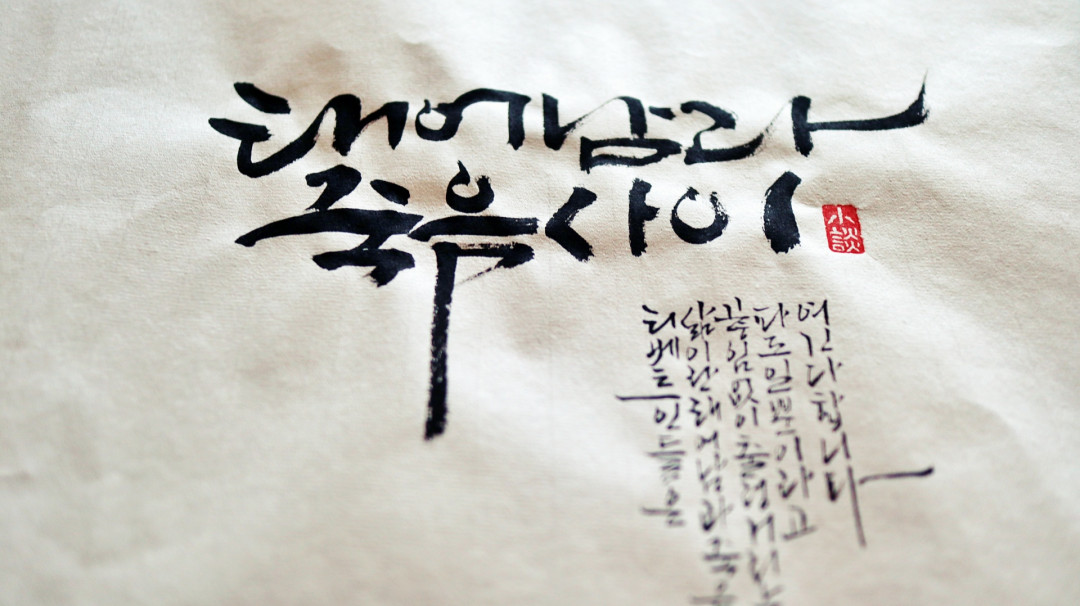 태어남과
죽음사이
小談
티베트인들은
삶이란태어남과죽음
끊임없이출렁거리는
파도일뿐이라고
여긴다합니다